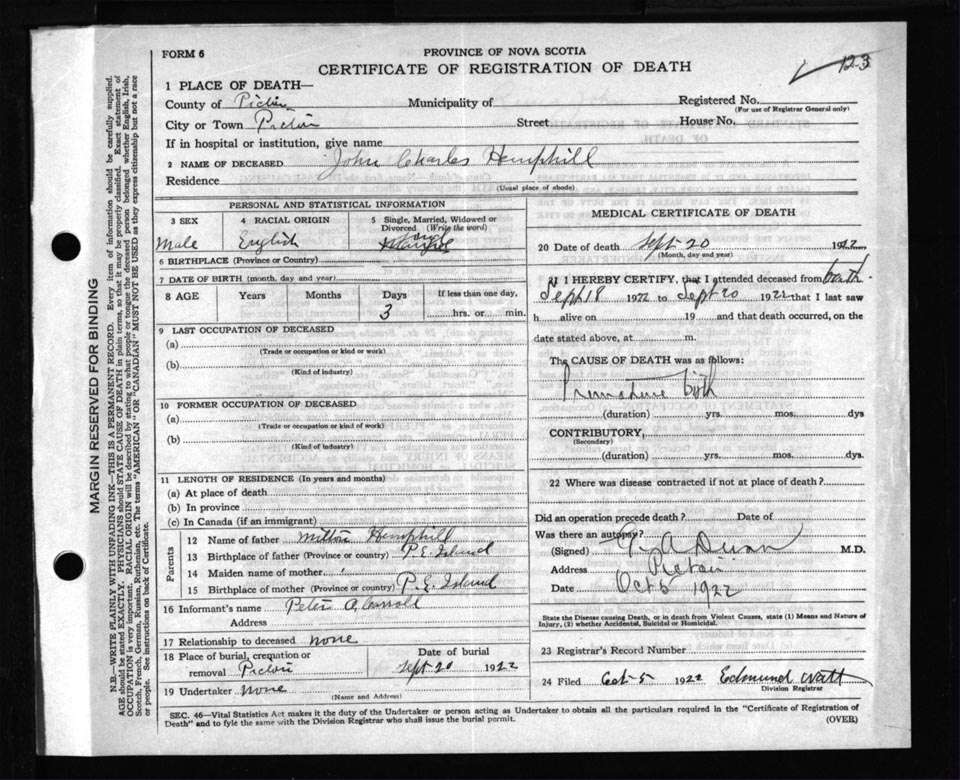 FORM 6
PROVINCE OF NOVA SCOTIA
CERTIFICATE OF REGISTRATION OF DEATH
123
1 PLACE OF DEATH—
County of Pictou Municipality of Registered No.
(For use of Registrar General only)
City or Town Pictou Street House No.
If in hospital or institution, give name
2 NAME OF DECEASED John Charles Hemphill
Residence
(Usual place of abode)
PERSONAL AND STATISTICAL INFORMATION
3 SEX 4 RACIAL ORIGIN 5 Single, Married, Widowed or Divorced (Write the word)
Male English Single
6 BIRTHPLACE (Province or Country)
7 DATE OF BIRTH (month, day and year)
8 AGE Years Months Days If less than one day,
3 hrs. or min.
9 LAST OCCUPATION OF DECEASED
(a)
(Trade or occupation or kind or work)
(b)
(Kind of industry)
10 FORMER OCCUPATION OF DECEASED
(a)
(Trade or occupation or kind of work)
(b)
(Kind of industry)
11 LENGTH OF RESIDENCE (In years and months)
(a) At place of death
(b) In province
(c) In Canada (if an immigrant)
Parents
12 Name of father Milton Hemphill
13 Birthplace of father (Province or country) P.E. Island
14 Maiden name of mother
15 Birthplace of mother (Province or country) P.E. Island
16 Informant's name Peter A Carroll
Address
17 Relationship to deceased none
18 Place of burial, cremation or removal Pictou
Date of burial
Sept 20 1922
19 Undertaker none
(Name and Address)
MEDICAL CERTIFICATE OF DEATH
20 Date of death Sept 20 1922
(Month, day and year)
21 I HEREBY CERTIFY, that I attended deceased from birth
Sept 18 1922 to Sept 20 1922 that I last saw
h alive on 19 and that death occurred, on the
date stated above, at m.
The CAUSE OF DEATH was as follows:
Premature birth
(duration) yrs. mos. dys
CONTRIBUTORY,
(Secondary)
(duration) yrs. mos. dys.
22 Where was disease contracted if not at place of death?
Did an operation precede death? Date of
Was there an autopsy?
(Signed) M.D.
Address Pictou
Date Oct 5 1922
State the Disease causing Death, or in death from Violent Causes, state (1) Means and Nature of
Injury, (2) whether Accidental, Suicidal or Homicidal.
23 Registrar's Record Number
24 Filed Oct 5 1922 Edmund Watt
Division Registrar
SEC. 46—Vital Statistics Act makes it the duty of the Undertaker or person acting as Undertaker to obtain all the particulars required in the "Certificate of Registration of
Death" and to fyle the same with the Division Registrar who shall issue the burial permit.
(OVER)
MARGIN RESERVED FOR BINDING
N.B.—WRITE PLAINLY WITH UNFADING INK—THIS IS A PERMANENT RECORD. Every item of information should be carefully supplied.
AGE should be stated EXACTLY. PHYSICIANS should STATE CAUSE OF DEATH in plain terms, so that it may be properly classified. Exact statement of
OCCUPATION is very important. RACIAL ORIGIN will be described by stating to what people or tongue the deceased person belonged whether English, Irish,
Scotch, French, German, Russian, Ruthenian, etc. The terms "AMERICAN" OR "CANADIAN" MUST NOT BE USED as they express citizenship but not a race
or people. See instructions on back of Certificate.